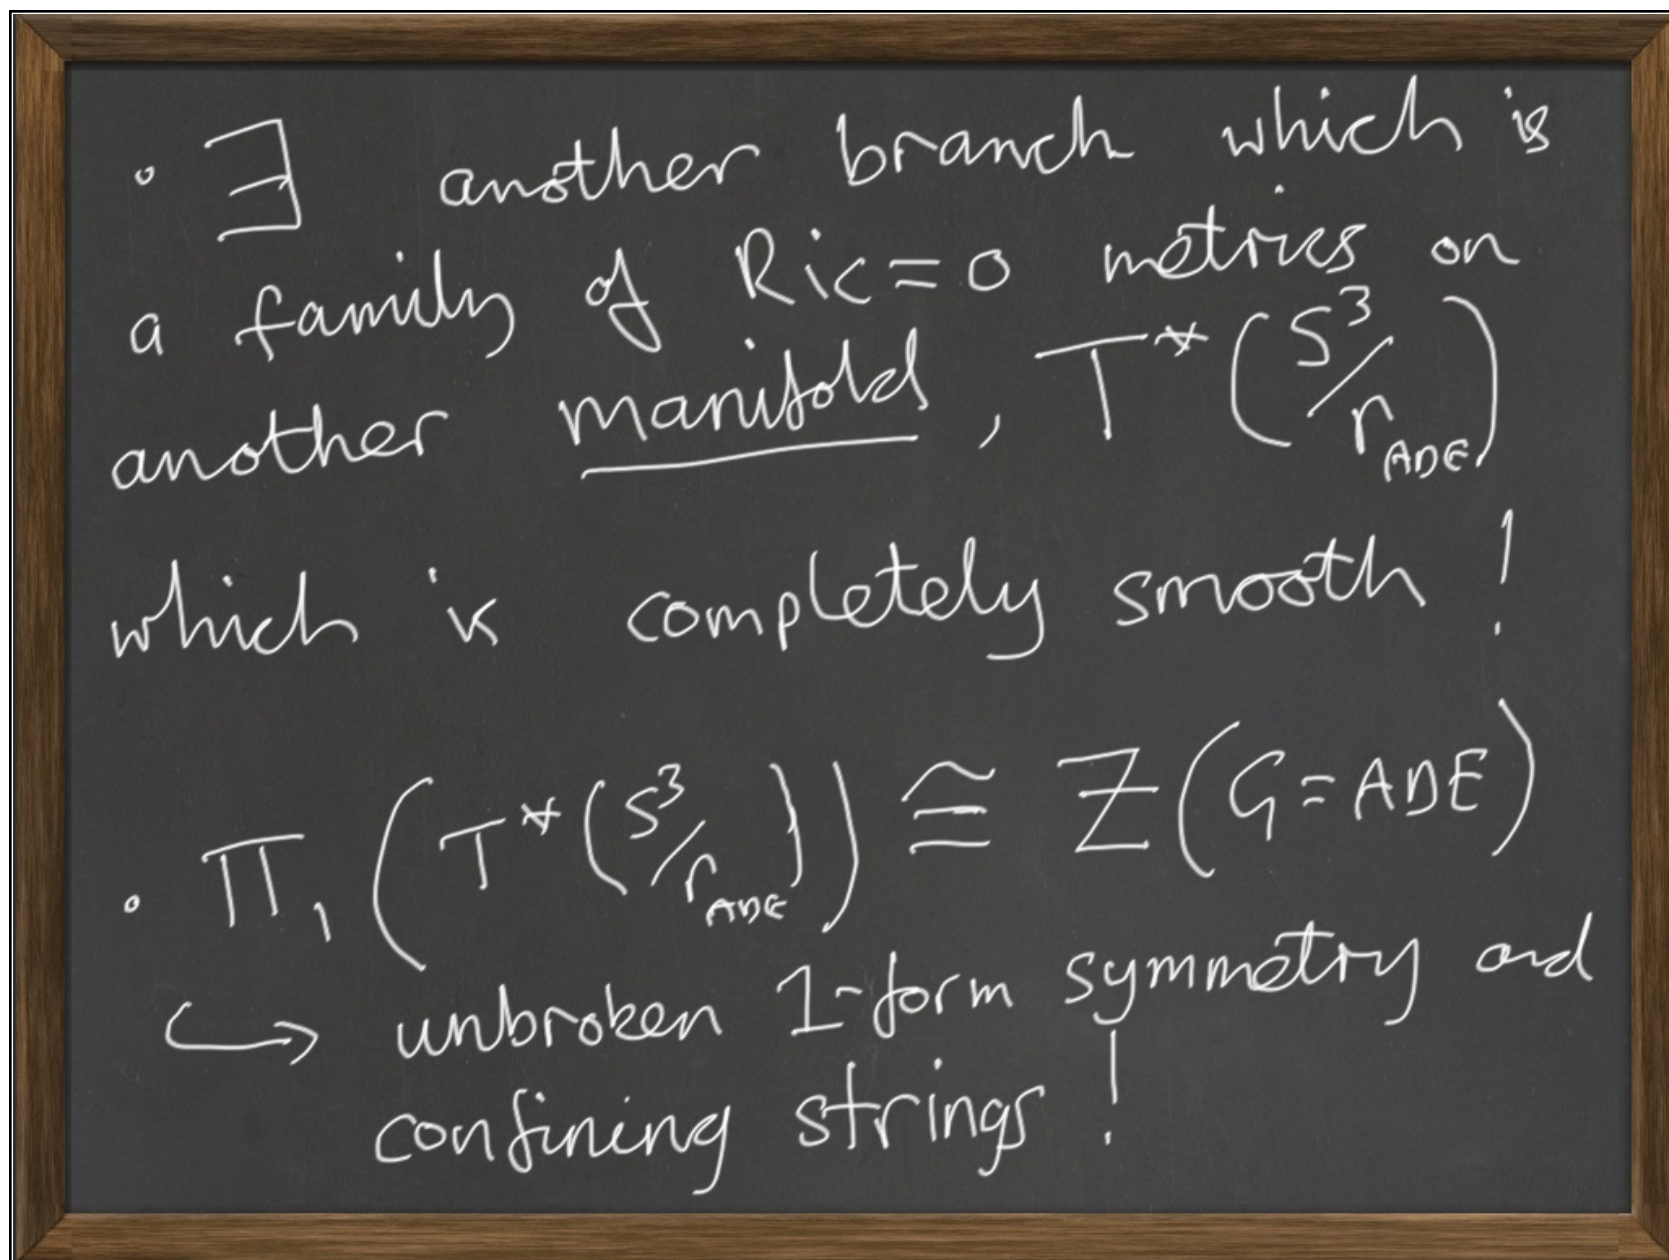 • ∃ another branch which is
a family of Ric=0 metrics on
another manifold, T*(S³/Γ_ADE)
which is completely smooth!
• Π₁(T*(S³/Γ_ADE)) ≅ Z(G=ADE)
↪ unbroken 1-form symmetry and
confining strings!